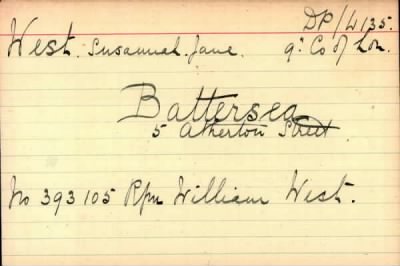 DP/4135.
West. Susannah. Jane. 9: Co of Lon.
Battersea
5 Atherton Street.
No 393105 Rfn William West.